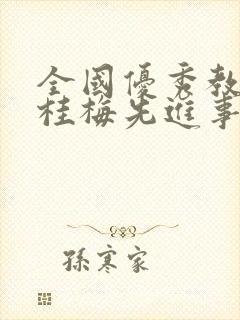 全國優秀教
桂梅先進事
孫寒家